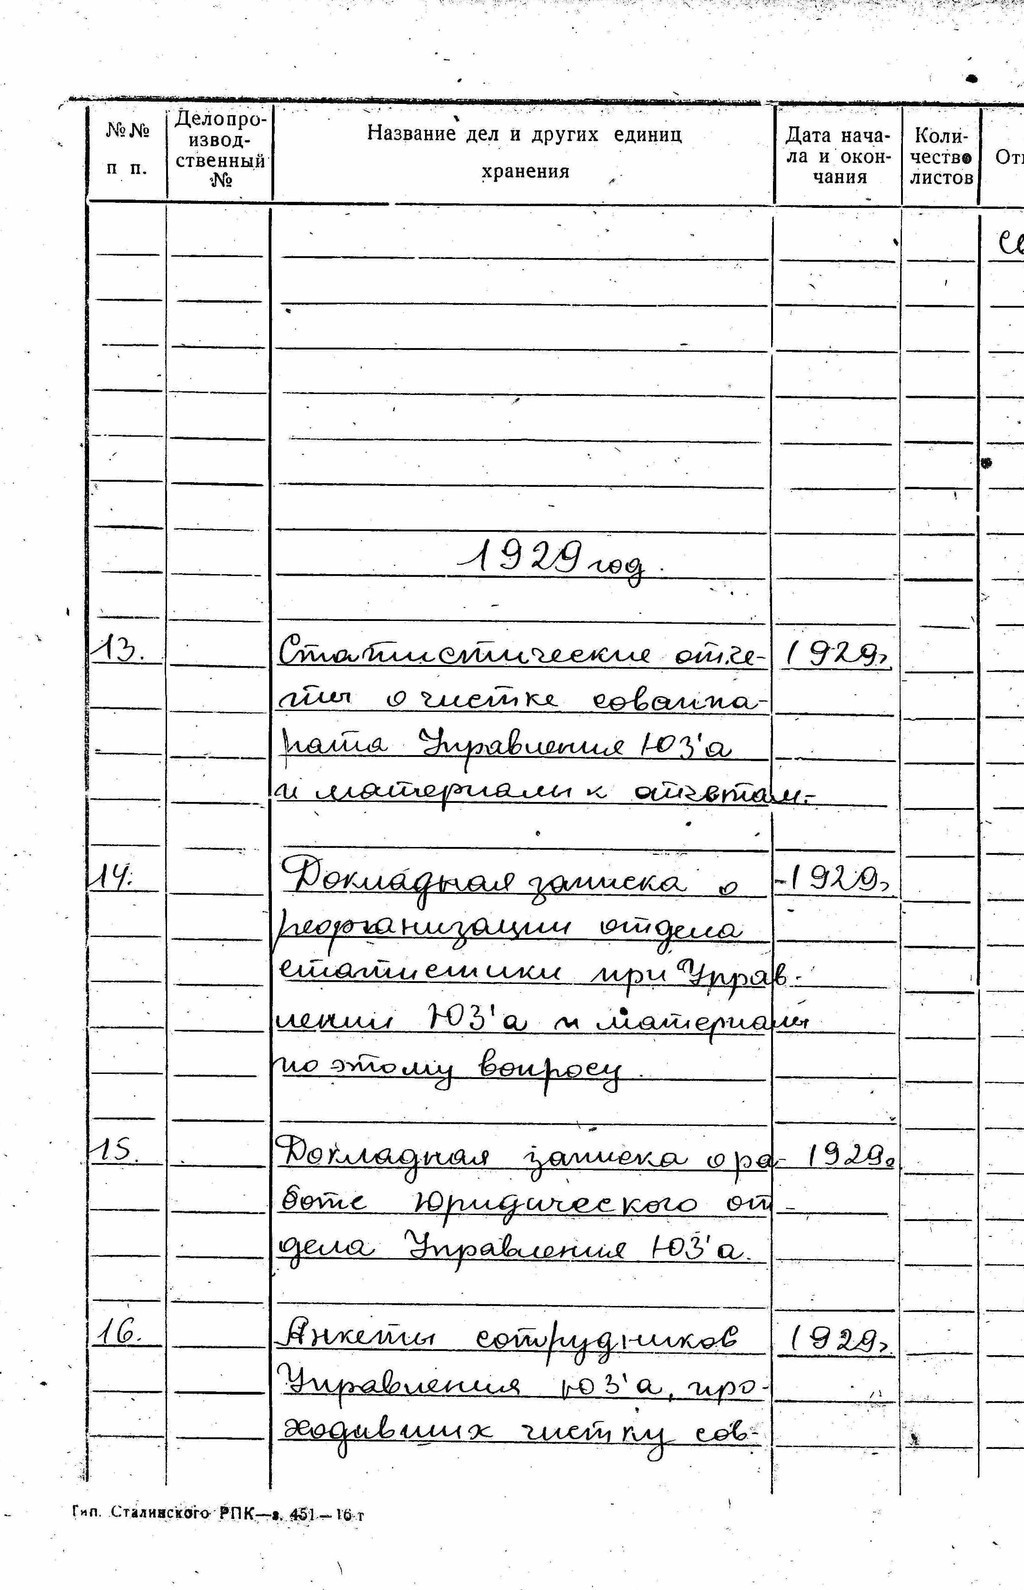 №№ п п.
Делопро-
извод-
ственный
№
Название дел и других единиц
хранения
Дата нача-
ла и окон-
чания
Коли-
чество
листов
1929 год.
13. Статистические отче- 1929г.
ты о чистке советскаппа-
рата Управления ЮЗ'а
и материалы к отчетам.
14. Докладная записка о 1929г.
реорганизации отдела
статистики при Управ-
лении ЮЗ'а и материалы
по этому вопросу.
15. Докладная записка о ра- 1929г
боте юридического от-
дела Управления ЮЗ'а.
16. Анкеты сотрудников 1929г.
Управления ЮЗ'а, про-
ходивших чистку сов-
Тип. Сталинского РПК—з. 451—16 т